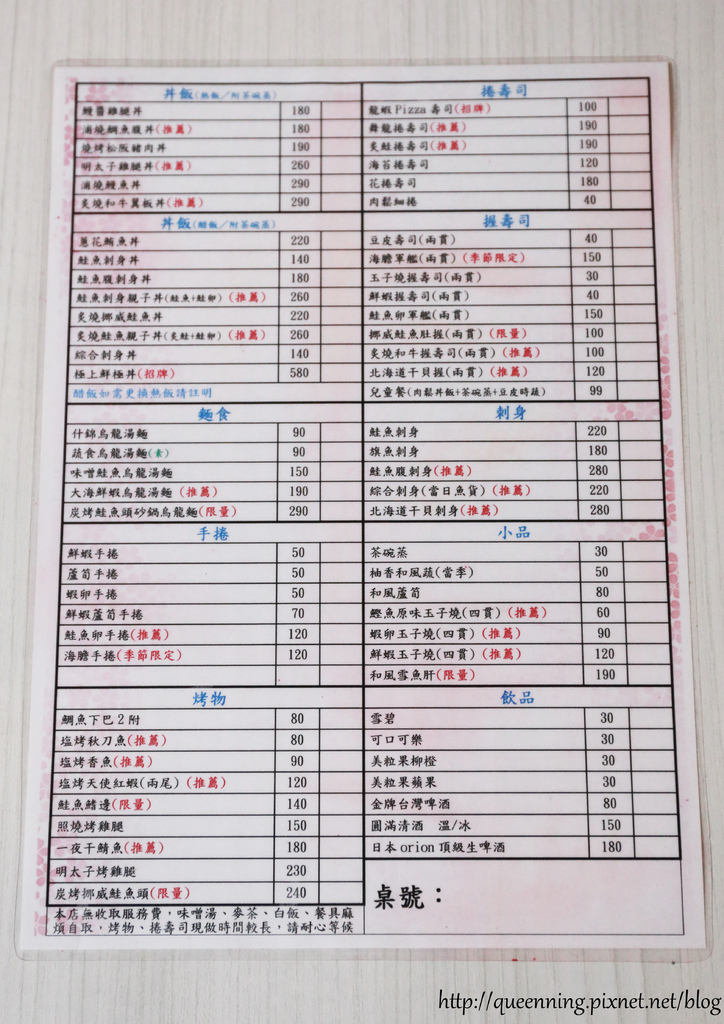 丼飯(熱飯/附茶碗蒸)
鰻醬雞腿丼 180
浦燒鯛魚腹丼(推薦) 180
燒烤松阪豬肉丼 190
明太子雞腿丼(推薦) 260
浦燒鰻魚丼 290
炙燒和牛翼板丼(推薦) 290
丼飯(醋飯/附茶碗蒸)
蔥花鮪魚丼 220
鮭魚刺身丼 140
鮭魚腹刺身丼 180
鮭魚刺身親子丼(鮭魚+鮭卵)(推薦) 260
炙燒挪威鮭魚丼 220
炙燒鮭魚親子丼(炙鮭+鮭卵)(推薦) 260
綜合刺身丼 140
極上鮮極丼(招牌) 580
醋飯如需更換熱飯請註明
麵食
什錦烏龍湯麵 90
蔬食烏龍湯麵(素) 90
味噌鮭魚烏龍湯麵 150
大海鮮蝦烏龍湯麵(推薦) 190
炭烤鮭魚頭砂鍋烏龍麵(限量) 290
手捲
鮮蝦手捲 50
蘆筍手捲 50
蝦卵手捲 50
鮮蝦蘆筍手捲 70
鮭魚卵手捲(推薦) 120
海膽手捲(季節限定) 120
烤物
鯛魚下巴2附 80
塩烤秋刀魚(推薦) 80
塩烤香魚(推薦) 90
塩烤天使紅蝦(兩尾)(推薦) 120
鮭魚鰭邊(限量) 140
照燒烤雞腿 150
一夜干鯖魚(推薦) 180
明太子烤雞腿 230
炭烤挪威鮭魚頭(限量) 240
本店無收取服務費,味噌湯、麥茶、白飯、餐具麻
煩自取,烤物、捲壽司現做時間較長,請耐心等候
捲壽司
龍蝦Pizza壽司(招牌) 100
舞龍捲壽司(推薦) 190
炙鮭捲壽司(推薦) 190
海苔捲壽司 120
花捲壽司 180
肉鬆細捲 40
握壽司
豆皮壽司(兩貫) 40
海膽軍艦(兩貫)(季節限定) 150
玉子燒握壽司(兩貫) 30
鮮蝦握壽司(兩貫) 40
鮭魚卵軍艦(兩貫) 150
挪威鮭魚肚握(兩貫)(限量) 100
炙燒和牛握壽司(兩貫)(推薦) 100
北海道干貝握(兩貫)(推薦) 120
兒童餐(肉鬆丼飯+茶碗蒸+豆皮時蔬) 99
刺身
鮭魚刺身 220
旗魚刺身 180
鮭魚腹刺身(推薦) 280
綜合刺身(當日魚貨)(推薦) 220
北海道干貝刺身(推薦) 280
小品
茶碗蒸 30
柚香和風蔬(當季) 50
和風蘆筍 80
鰹魚原味玉子燒(四貫)(推薦) 60
蝦卵玉子燒(四貫)(推薦) 90
鮮蝦玉子燒(四貫)(推薦) 120
和風雪魚肝(限量) 190
飲品
雪碧 30
可口可樂 30
美粒果柳橙 30
美粒果蘋果 30
金牌台灣啤酒 80
圓滿清酒 溫/冰 150
日本orion頂級生啤酒 180
桌號:
http://queenning.pixnet.net/blog